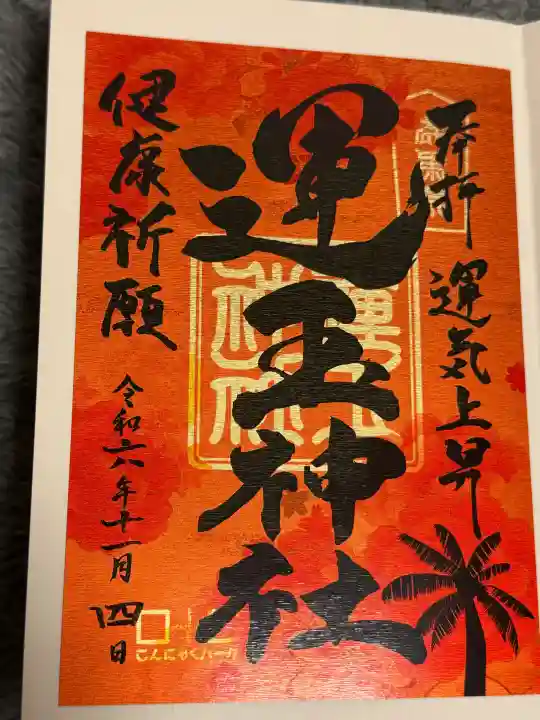 奉拝
運気上昇
運玉神社
健康祈願
令和六年十一月四日
こんにゃくパーク